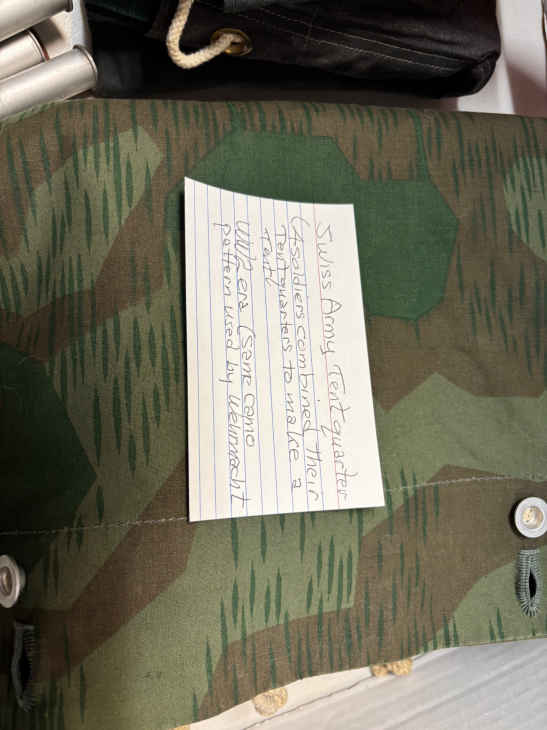 Swiss Army Tentquarter
(4 soldiers combined their
Tentquarters to make a
Tent)
WW2 era (same camo
pattern used by Wehrmacht